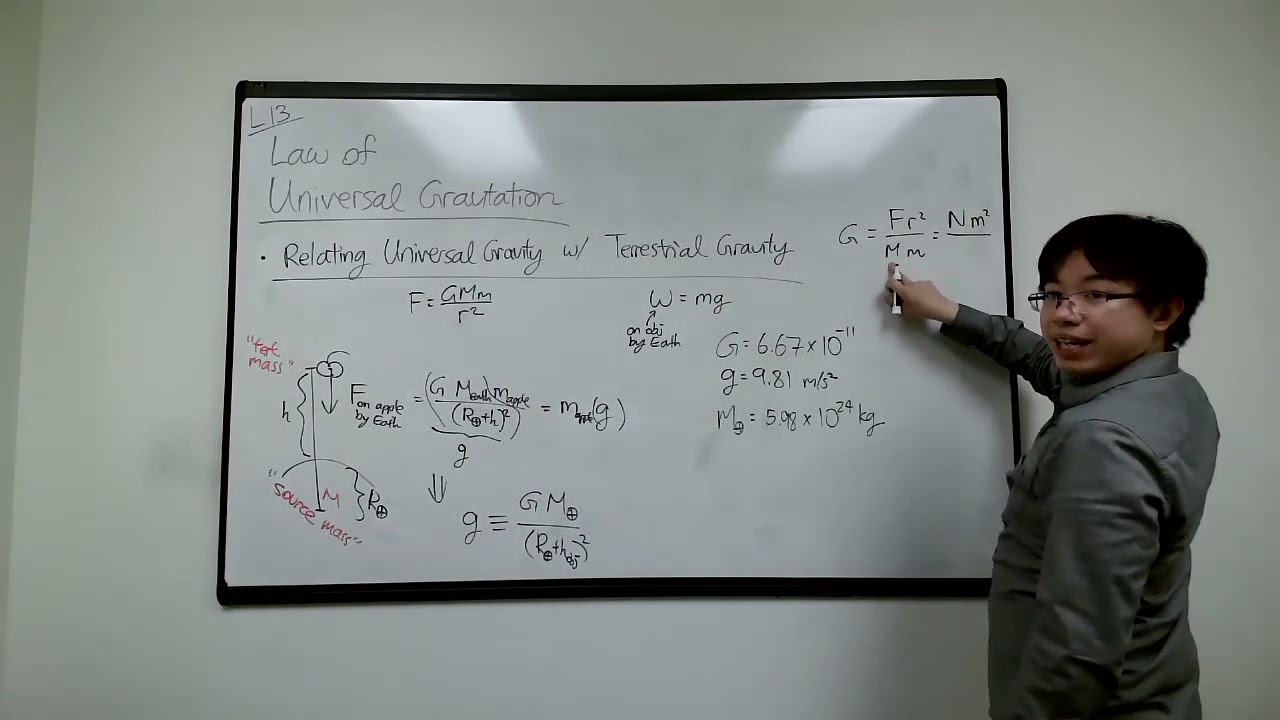 L13
Law of
Universal Gravitation
• Relating Universal Gravity w/ Terrestrial Gravity
F = GMm / r²
W = mg
on obj
by Earth
G = Fr² / Mm = Nm²
G = 6.67 × 10⁻¹¹
g = 9.81 m/s²
M⊕ = 5.98 × 10²⁴ kg
"test
mass"
h
F on apple by Earth = (G M_earth) m_apple / (R⊕+h)² = m_apple (g)
g
"source mass"
M
R⊕
⇓
g ≡ G M⊕ / (R⊕+h_obj)²